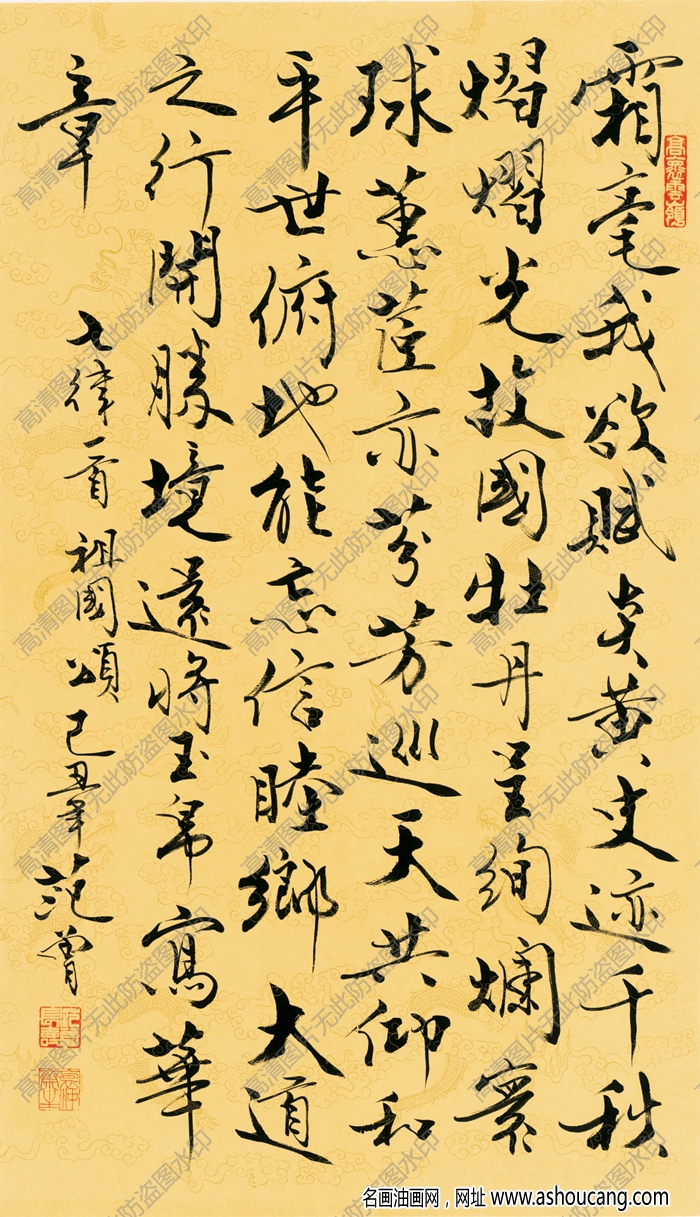 霜毫我欲賦炎黃史迹千秋
熠熠光故國牡丹呈絢爛寰
球蕙茝亦芬芳巡天共仰和
平世俯地能忘信睦鄉大道
之行開勝境還將玉帛寫華
章
七律一首祖國頌己丑年范曾
高清图片无此防盗图水印
名画油画网，网址 www.ashoucang.com